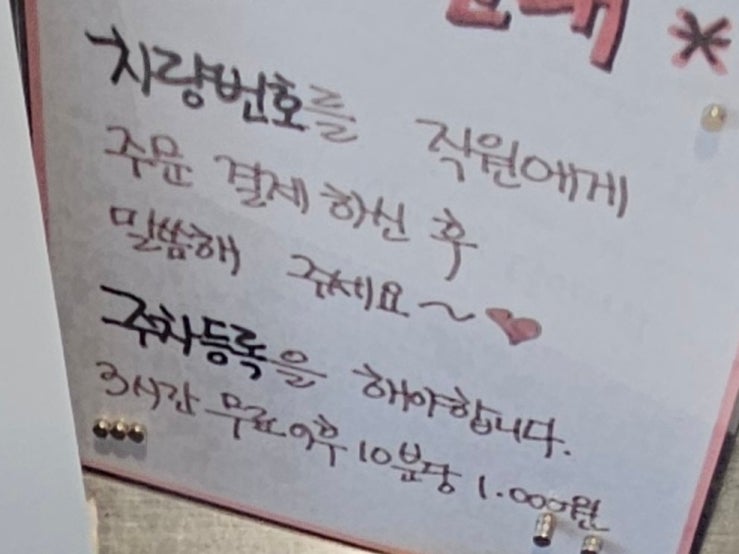 *
차량번호를 직원에게
주문 결제 하신 후
말씀해 주세요~♥
주차등록을 해야합니다.
3시간 무료 이후 10분당 1.000원